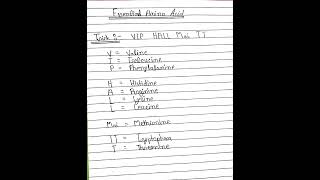 Essential Amino Acid
Trick :- VIP HALL Mai TT
V = Valine
I = Isoleucine
P = Phenylalanine
H = Histidine
A = Arginine
L = Lysine
L = Leucine
Mai = Methionine
T = Tryptophan
T = Threonine